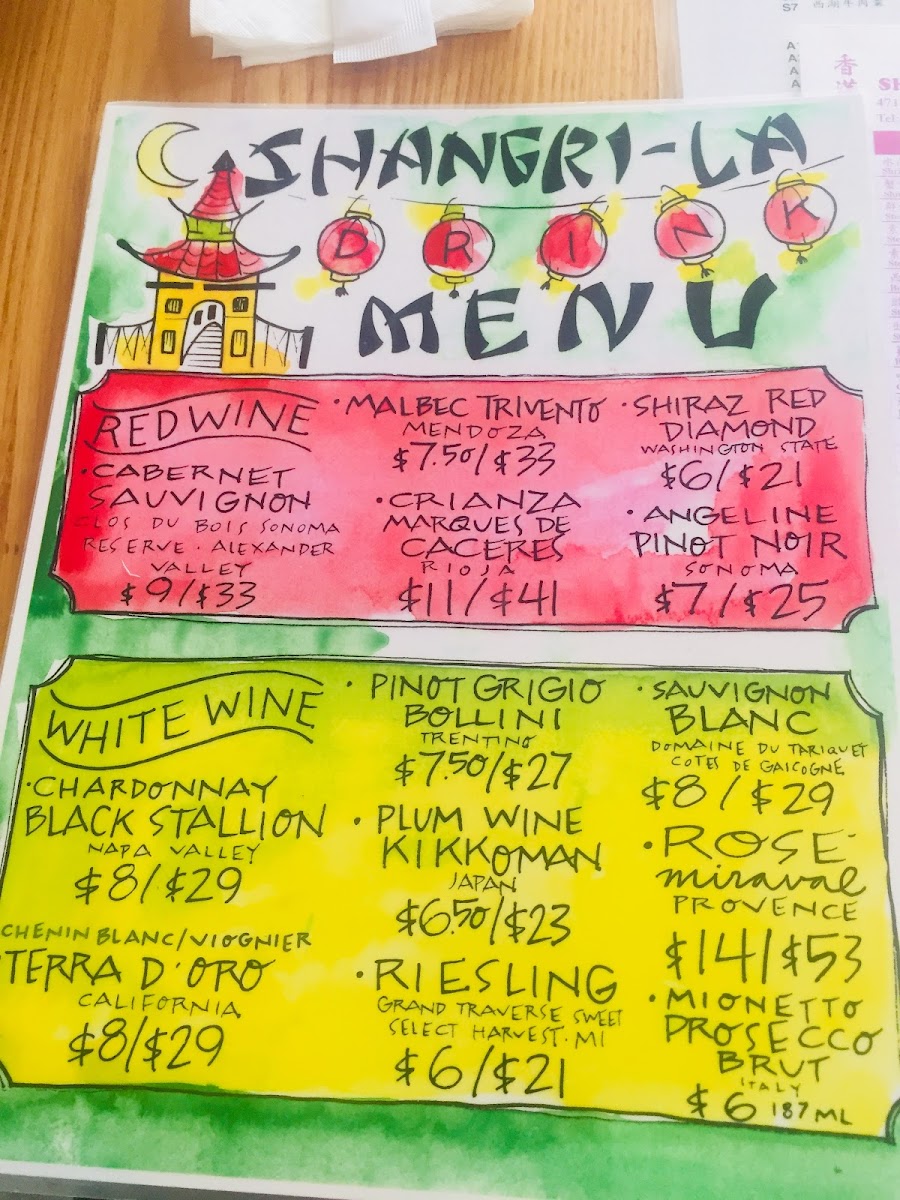 S7 西湖牛肉羹
A
A
A
A
香
SH
471
Tel:
SHANGRI-LA
DRINK
MENU
RED WINE
·CABERNET
SAUVIGNON
CLOS DU BOIS SONOMA
RESERVE · ALEXANDER
VALLEY
$9/$33
·MALBEC TRIVENTO
MENDOZA
$7.50/$33
·CRIANZA
MARQUES DE
CACERES
RIOJA
$11/$41
·SHIRAZ RED
DIAMOND
WASHINGTON STATE
$6/$21
·ANGELINE
PINOT NOIR
SONOMA
$7/$25
WHITE WINE
·CHARDONNAY
BLACK STALLION
NAPA VALLEY
$8/$29
CHENIN BLANC/VIOGNIER
TERRA D'ORO
CALIFORNIA
$8/$29
·PINOT GRIGIO
BOLLINI
TRENTINO
$7.50/$27
·PLUM WINE
KIKKOMAN
JAPAN
$6.50/$23
·RIESLING
GRAND TRAVERSE SWEET
SELECT HARVEST·MI
$6/$21
·SAUVIGNON
BLANC
DOMAINE DU TARIQUET
COTES DE GAICOGNE
$8/$29
·ROSE
miraval
PROVENCE
$14/$53
·MIONETTO
PROSECCO
BRUT
ITALY
$6 187ML